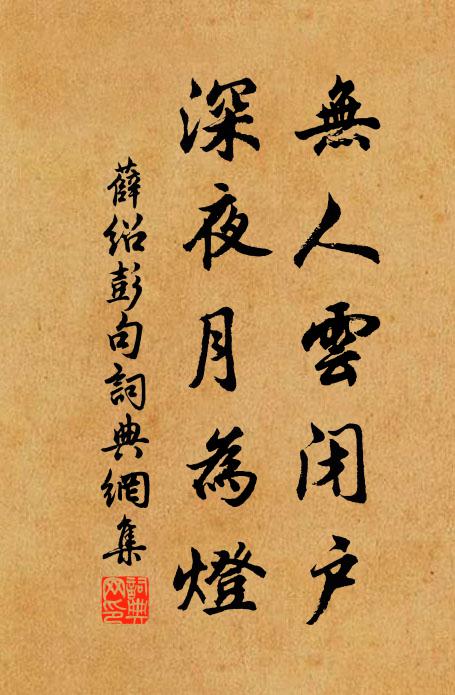 無人雲闭户
深夜月為燈
薛绍彭句詞典網集
詞典网印